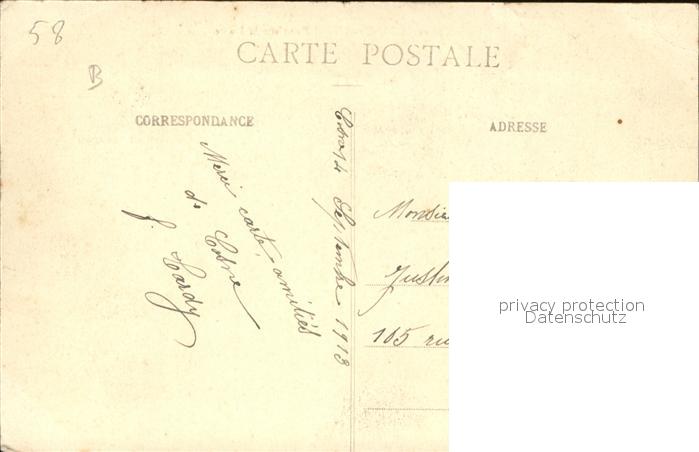 58
B
CARTE POSTALE
CORRESPONDANCE
ADRESSE
Merci carte, amitiés
de Cosne
f. Hardy
14 Septembre 1913
Monsie
Justin
165 ru
privacy protection
Datenschutz